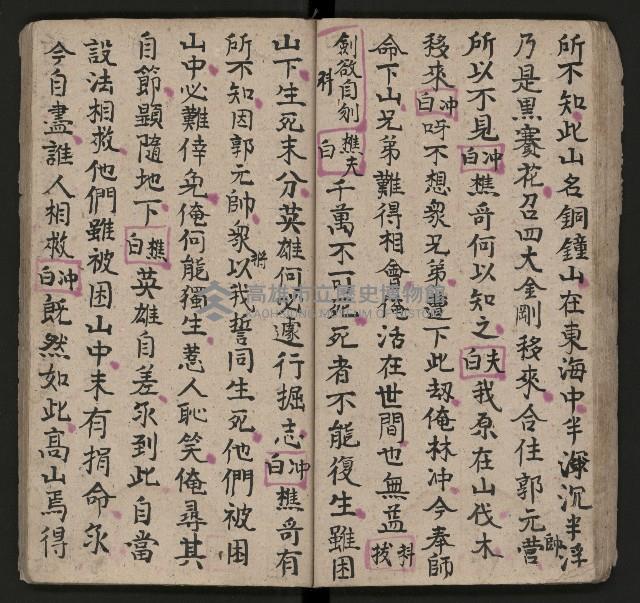 所不知此山名銅鐘山在東海中半渾沉半浮
乃是黑賽花召四大金剛移來合住郭元帥營
所以不見冲白樵哥何以知之夫白我原在山伐木
移來冲白呀不想衆兄弟遭下此刼俺林冲今奉師
命下山兄弟難得相會我活在世間也無益科拔
劍欲自刎科樵夫白千萬不可死死者不能復生雖困
山下生死末分英雄何必遽行掘志冲白樵哥有
所不知因郭元帥衆将以我誓同生死他們被困
山中必難倖免俺何能獨生惹人恥笑俺尋其
自節顕隨地下樵白英雄自差永到此自當
設法相救他們雖被困山中末有捐命永
今自盡誰人相救冲白既然如此高山焉得
高雄市立歷史博物館
KAOHSIUNG MUSEUM OF HISTORY